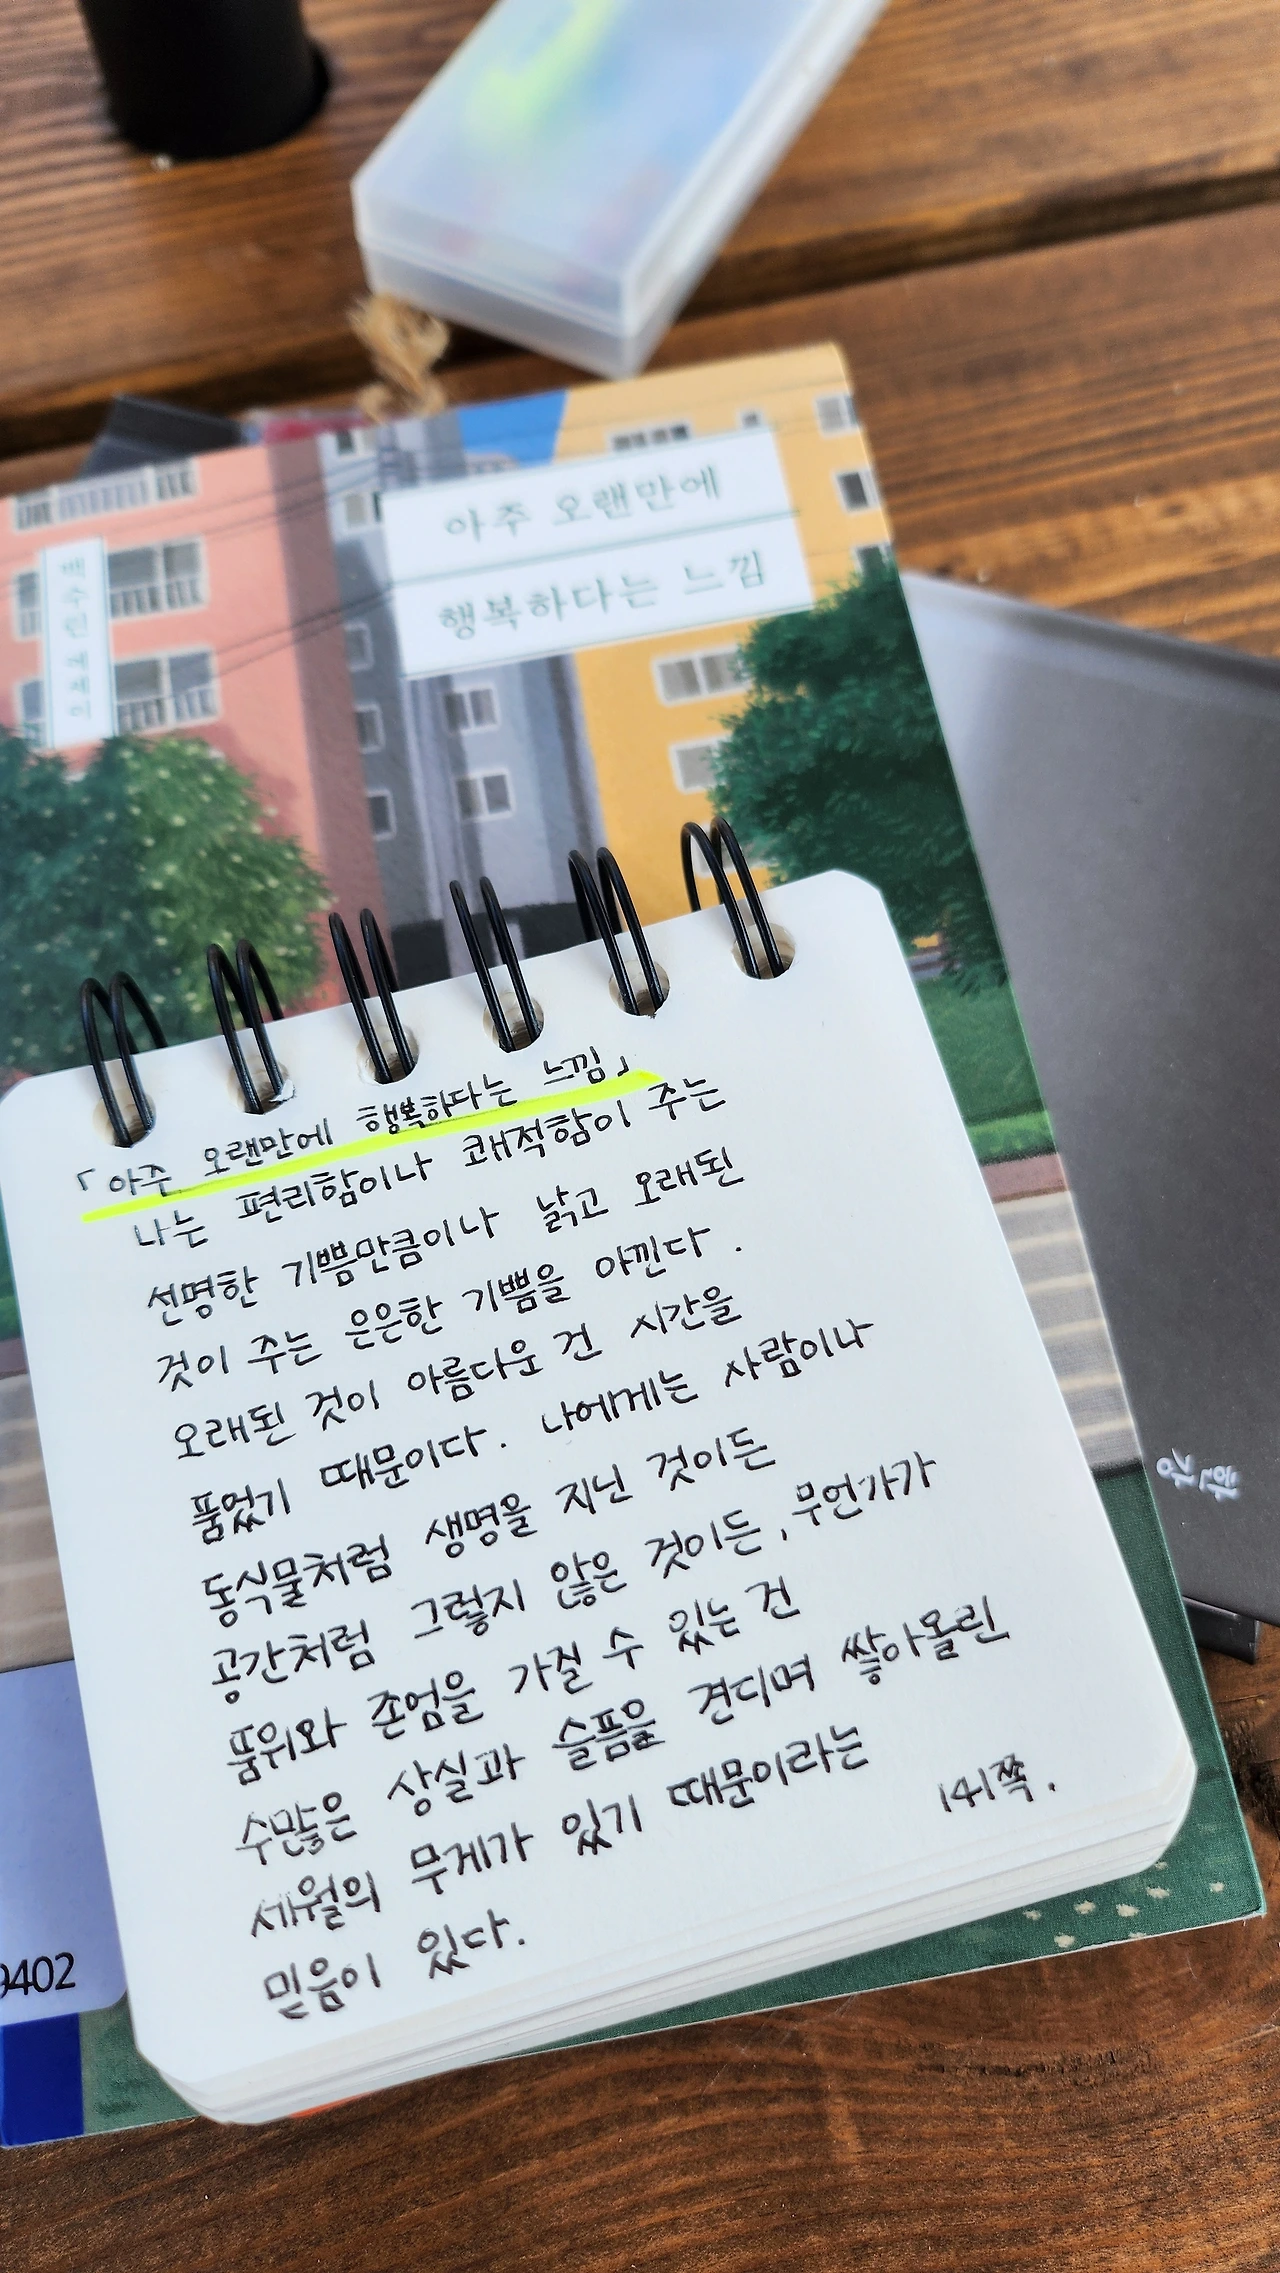 아주 오랜만에
행복하다는 느낌
백수린 에세이
「아주 오랜만에 행복하다는 느낌」
나는 편리함이나 쾌적함이 주는
선명한 기쁨만큼이나 낡고 오래된
것이 주는 은은한 기쁨을 아낀다.
오래된 것이 아름다운 건 시간을
품었기 때문이다. 나에게는 사람이나
동식물처럼 생명을 지닌 것이든
공간처럼 그렇지 않은 것이든, 무언가가
품위와 존엄을 가질 수 있는 건
수많은 상실과 슬픔을 견디며 쌓아올린
세월의 무게가 있기 때문이라는
믿음이 있다.
141쪽.
한강
9402